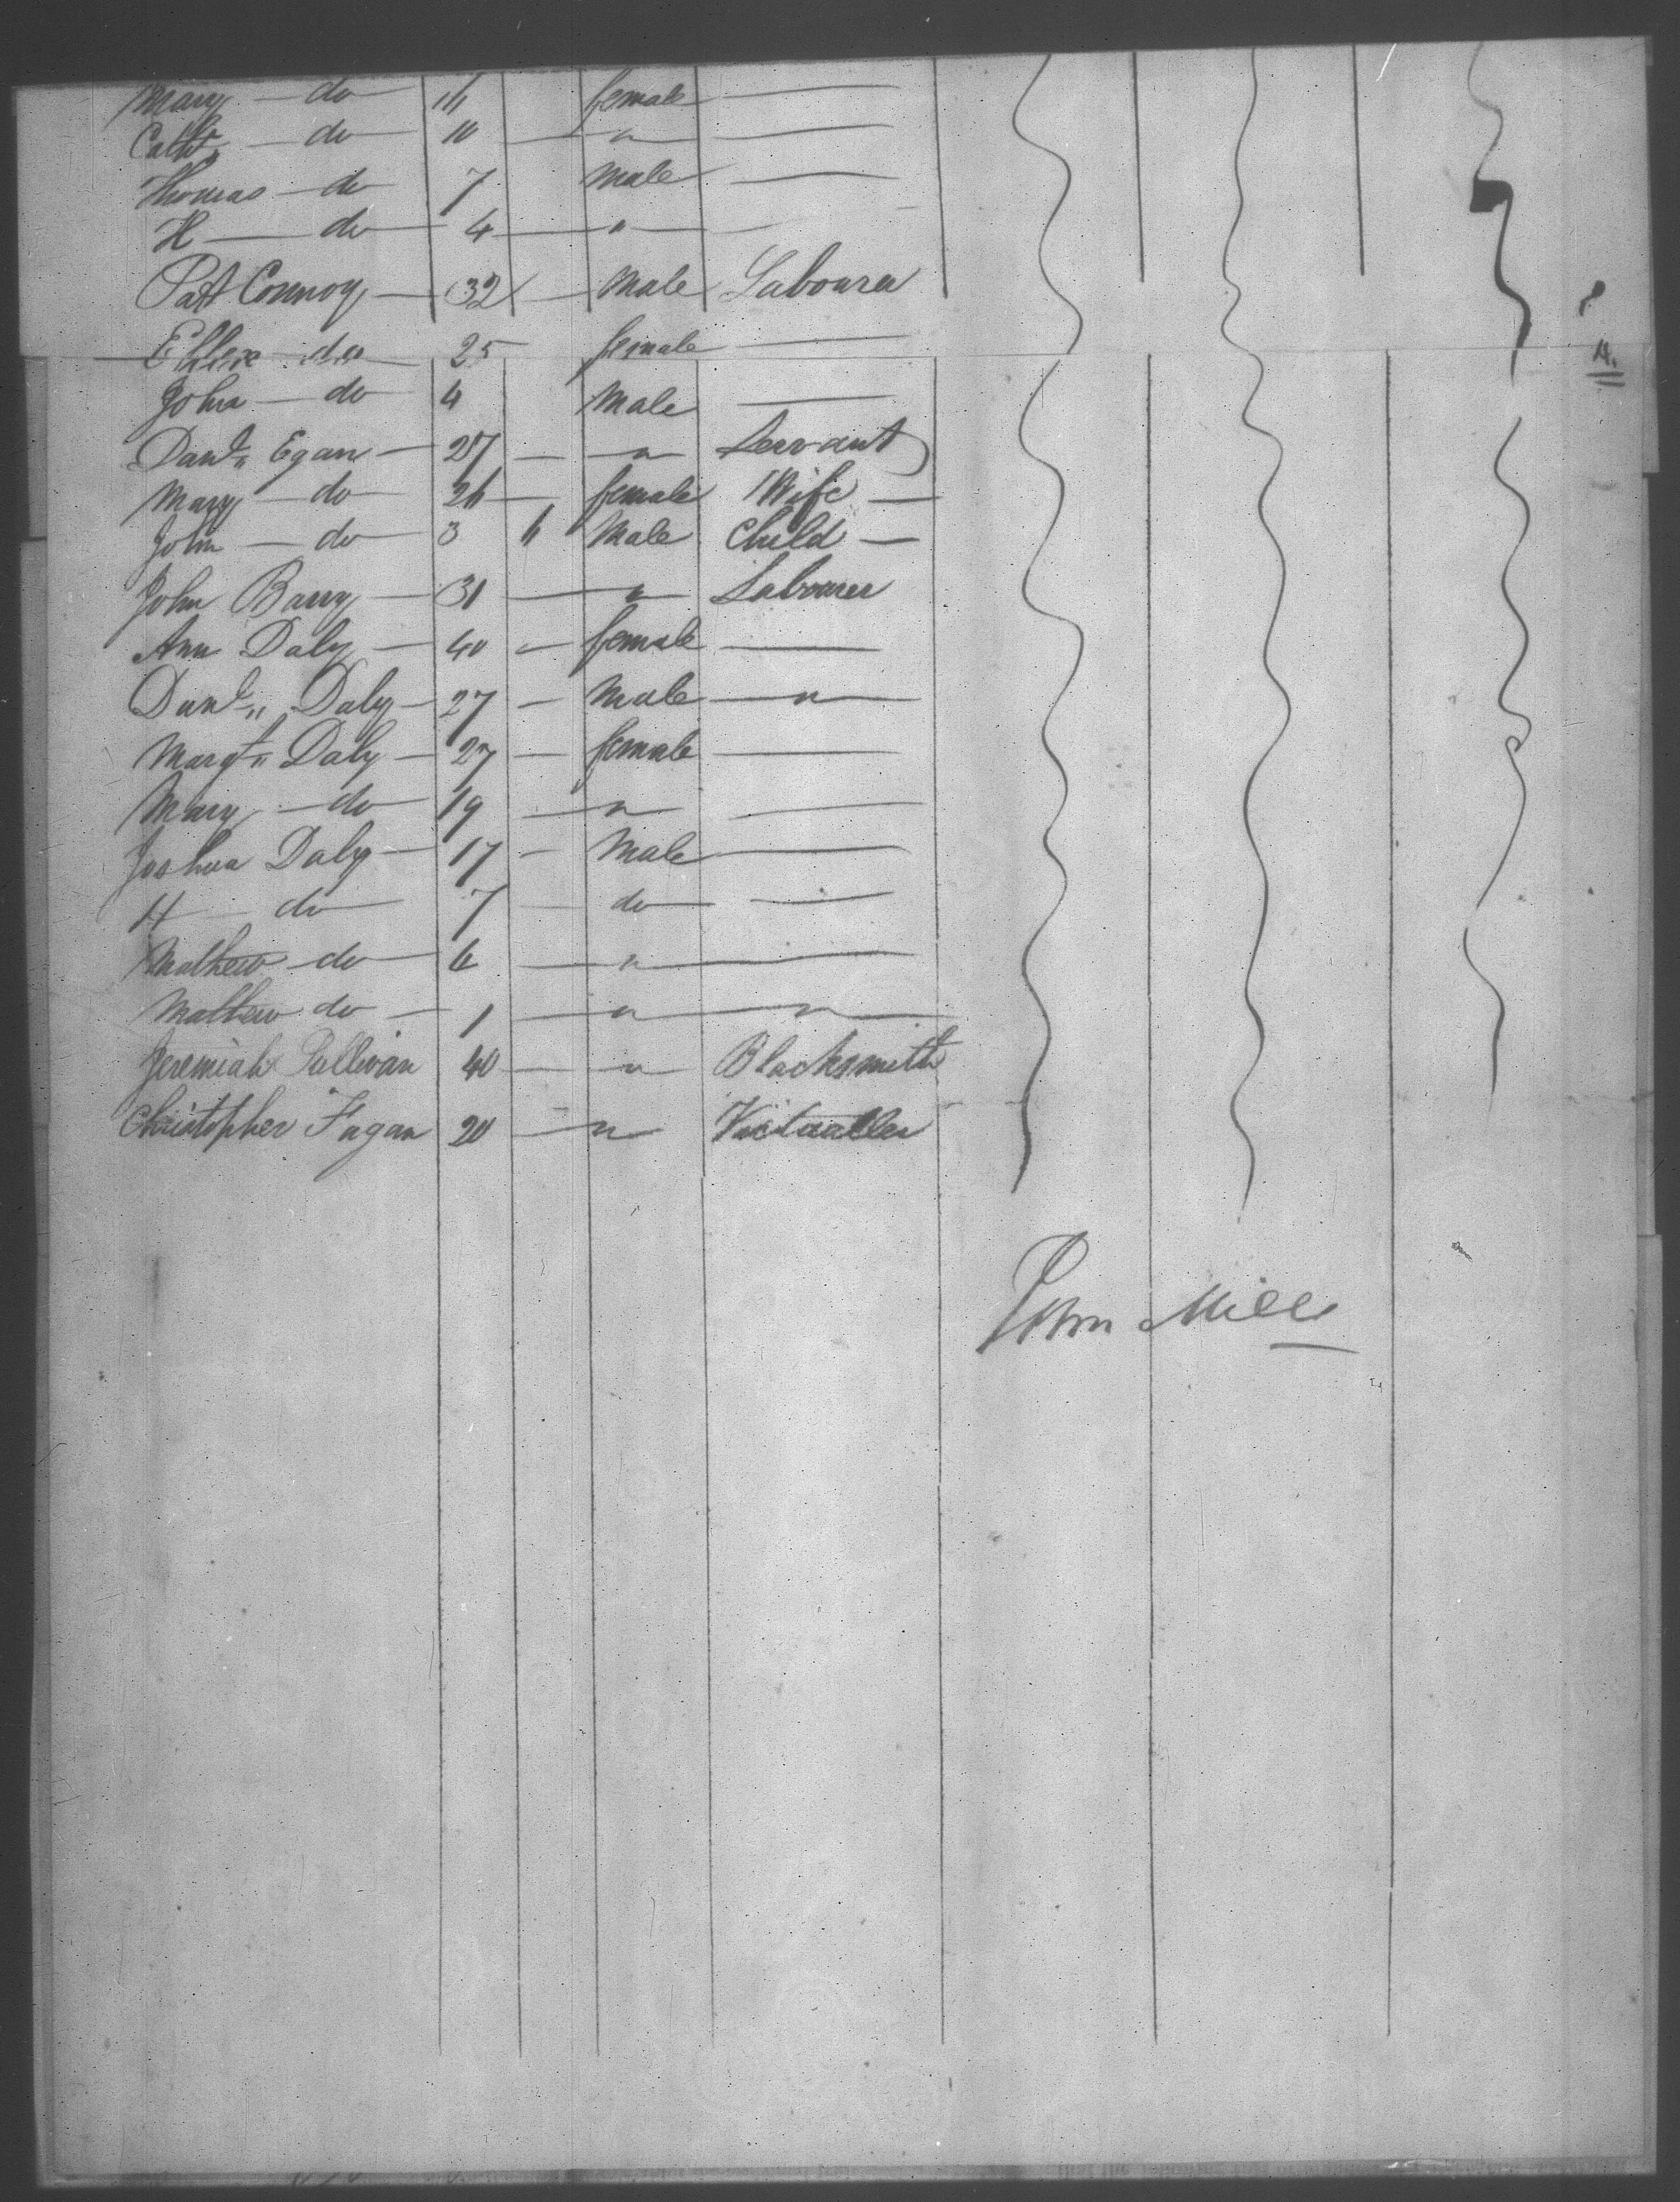 Mary — do — 14 female —
Cath — do — 10 — " —
Thomas — do 7 Male —
H — do — 4 — " —
Patt Connoy — 32 — Male Labourer
Ellen do 25 female —
John — do 4 Male —
Danl" Egan — 27 — " — Servant
Mary — do — 26 — female Wife —
John — do — 3 " Male Child —
John Barry — 31 — " — Labourer
Ann Daly — 40 — female —
Danl" Daly — 27 — Male — " —
Margt" Daly — 27 — female —
Mary — do — 19 — " — —
Joshua Daly — 17 — Male —
H — do — 7 — do — —
Mathew do — 6 — " —
Mathew do — 1 — " — " —
Jeremiah Sullivan 40 — " — Blacksmith
Christopher Fagan 20 — " — Victualler
John Mills